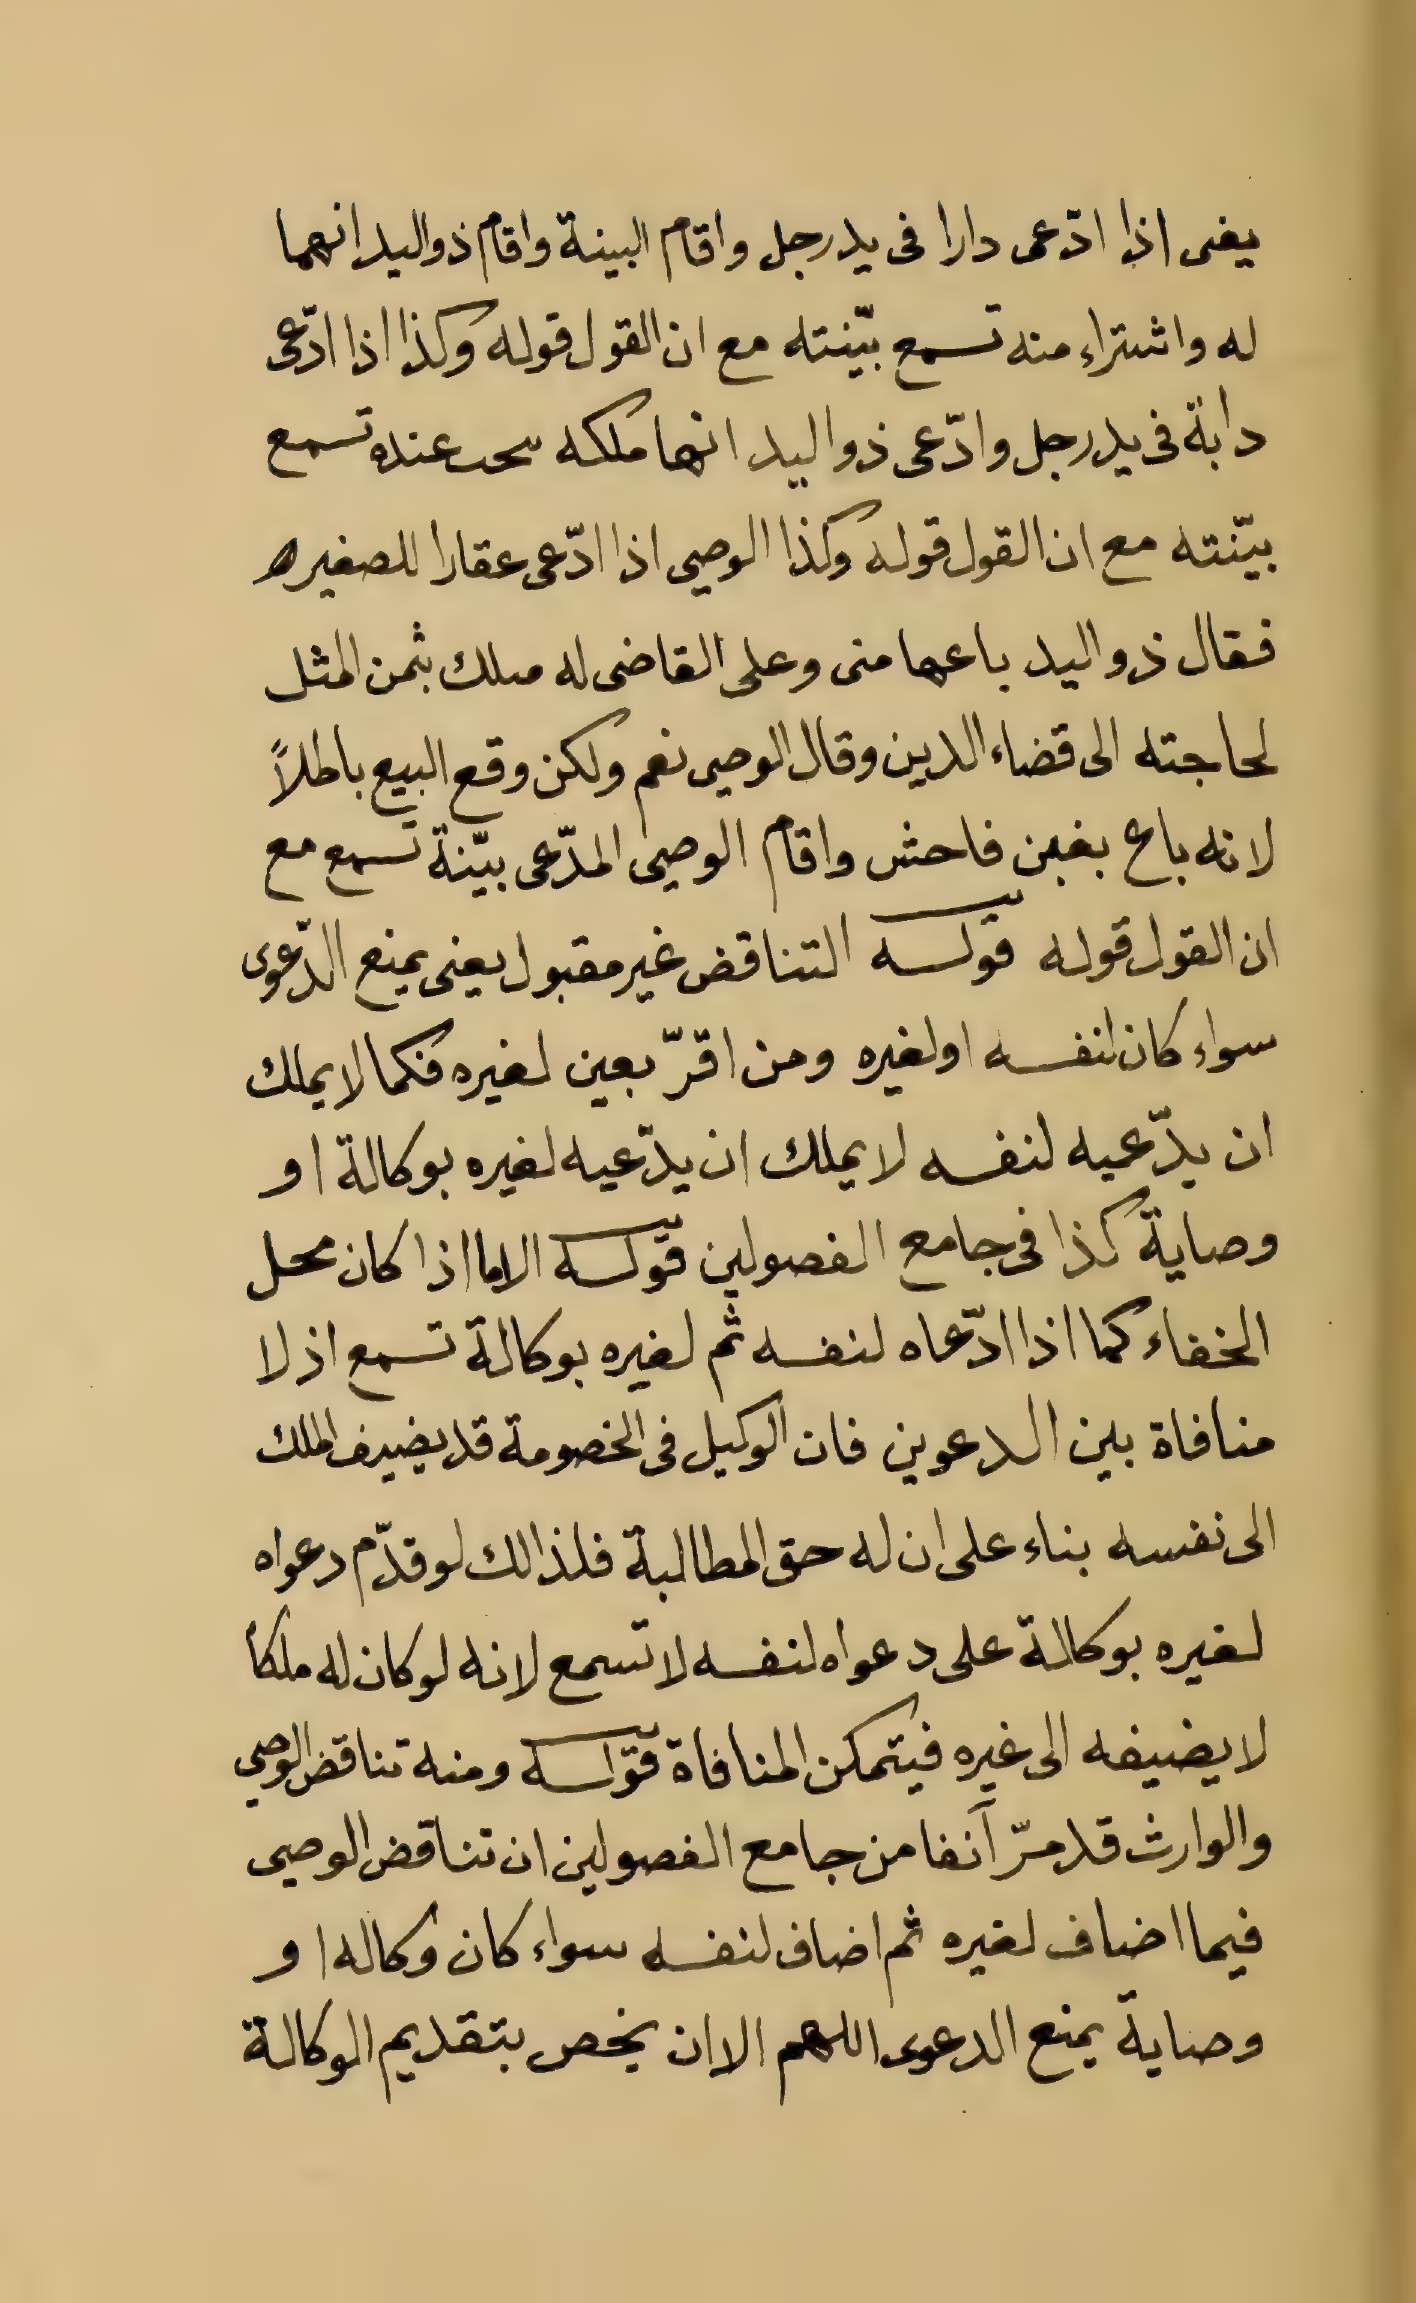 يعنى اذا ادّعى دارا فى يد رجل واقام البينة واقام ذواليد انهما
له واشتراء منه تسمع بيّنته مع ان القول قوله وكذا اذا ادّعى
دابة فى يد رجل وادّعى ذواليد انهما ملكه عنده تسمع
بيّنته مع ان القول قوله وكذا الوصى اذا ادّعى عقارا للصغير
فقال ذواليد باعهما منى وعلى القاضى له بثمن المثل
لحاجته الى قضاء الدين وقال الوصى نعم ولكن وقع البيع باطلاً
لانه باع بغبن فاحش واقام الوصى المدّعى بيّنة تسمع مع
ان القول قوله قوله التناقض غير مقبول يعنى يمنع الدّعوى
سواء كان لنفسه او لغيره ومن اقرّ بعين لغيره فكما لا يملك
ان يدّعيه لنفسه لا يملك ان يدّعيه لغيره بوكالة او
وصاية كذا فى جامع الفصولين قوله الا ما اذا كان محل
الخفاء كما اذا ادّعاه لنفسه ثم لغيره بوكالة تسمع اذ لا
منافاة بين الدعوين فان الوكيل فى الخصومة قد يضيف الملك
الى نفسه بناء على ان له حق المطالبة فلذالك لو قدّم دعواه
لغيره بوكالة على دعواه لنفسه لا تسمع لانه لو كان له ملكاً
لا يضيفه الى غيره فيتمكن المنافاة قوله ومنه تناقض الوصى
والوارث قد مرّ آنفا من جامع الفصولين ان تناقض الوصى
فيما اضاف لغيره ثم اضاف لنفسه سواء كان وكاله او
وصاية يمنع الدعوى اللهم الا ان يخص بتقديم الوكالة